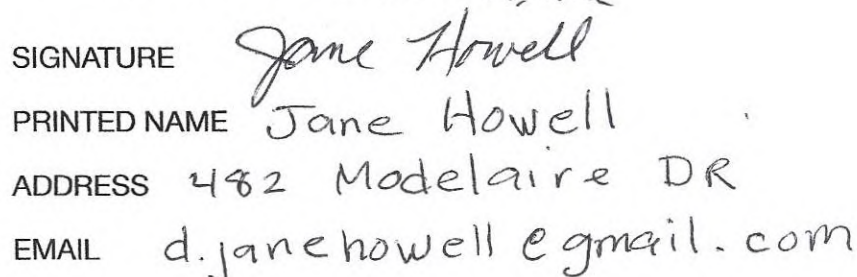 SIGNATURE Jane Howell
PRINTED NAME Jane Howell
ADDRESS 482 Modelaire DR
EMAIL d.janehowell@gmail.com